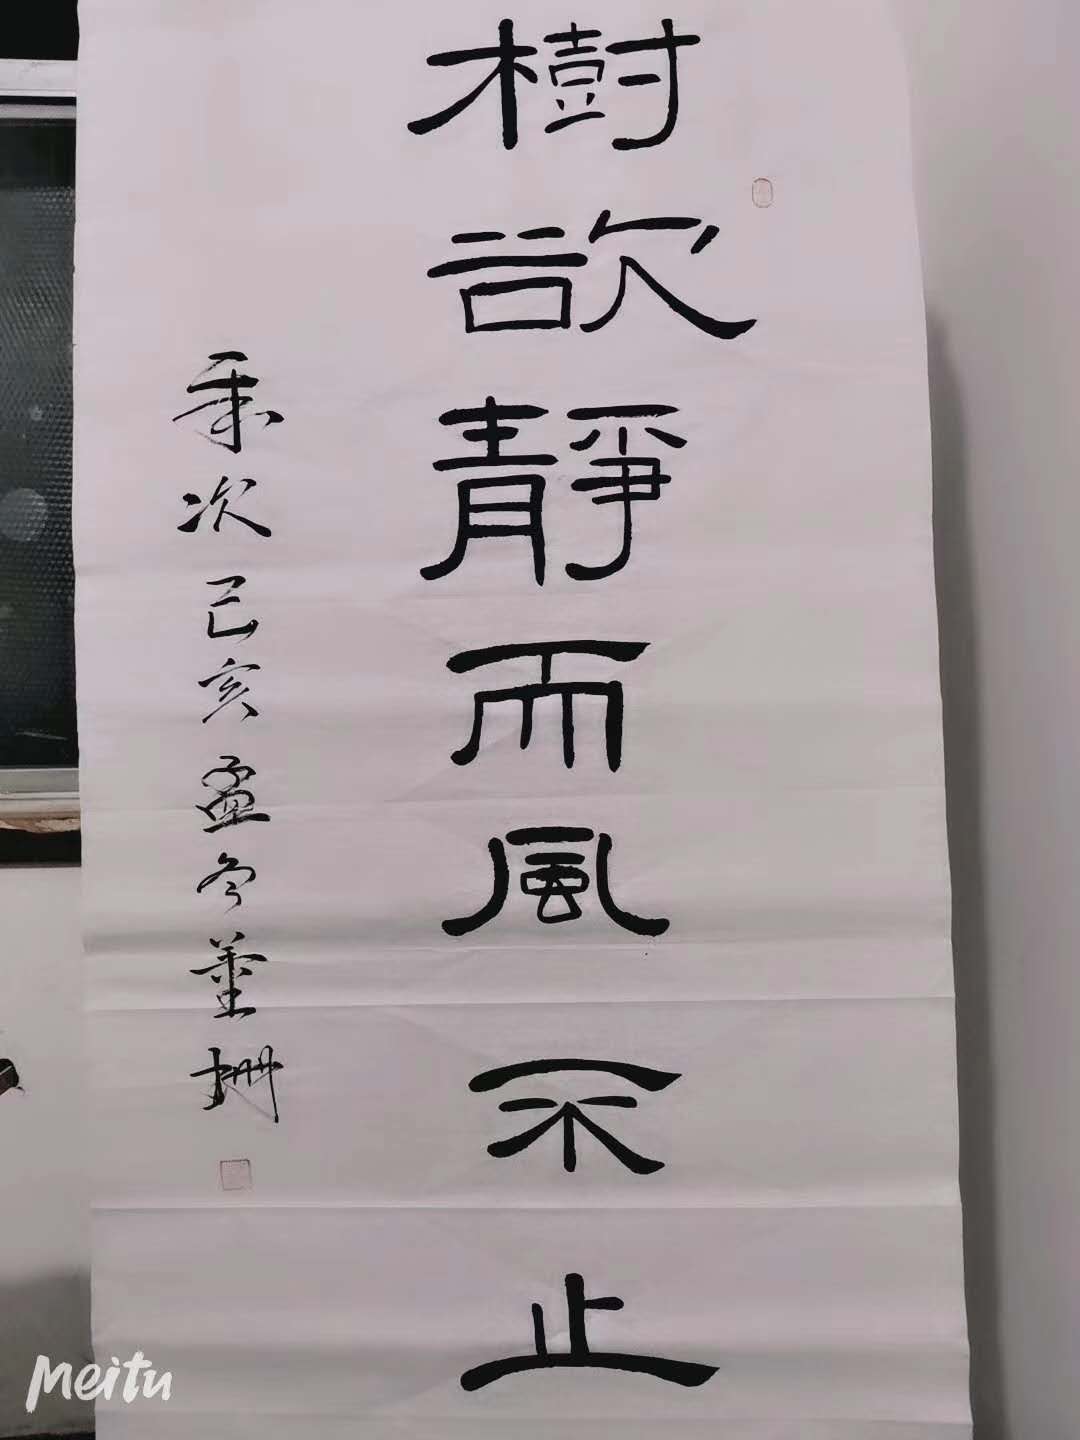 樹欲靜而風不止
年次己亥孟冬董珊
Meitu